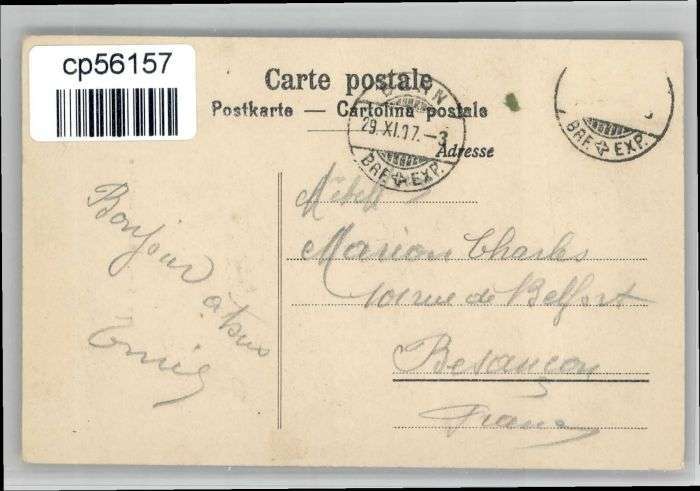 cp56157
Carte postale
Postkarte — Cartolina postale
29.XI.07.–3
BRF. EXP.
BRF. EXP.
Adresse
Marion Charles
101 rue de Belfort
Besançon
France
Bonjour
à tous
Emile